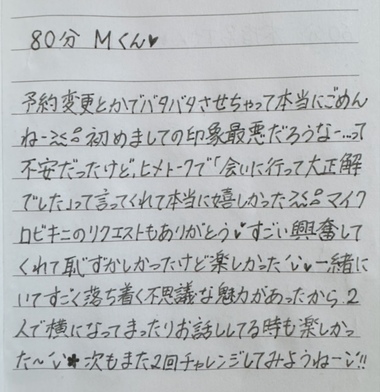 80分 Mくん♥
予約変更とかでバタバタさせちゃって本当にごめん
ねー 初めましての印象最悪だろうなー…って
不安だったけど、ヒメトークで「会いに行って大正解
でした」って言ってくれて本当に嬉しかった マイク
ロビキニのリクエストもありがとう♥すごい興奮して
くれて恥ずかしかったけど楽しかった♥一緒に
いてすごく落ち着く不思議な魅力があったから、2
人で横になってまったりお話ししてる時も楽しかっ
た〜 次もまた2回チャレンジしてみようねー!!